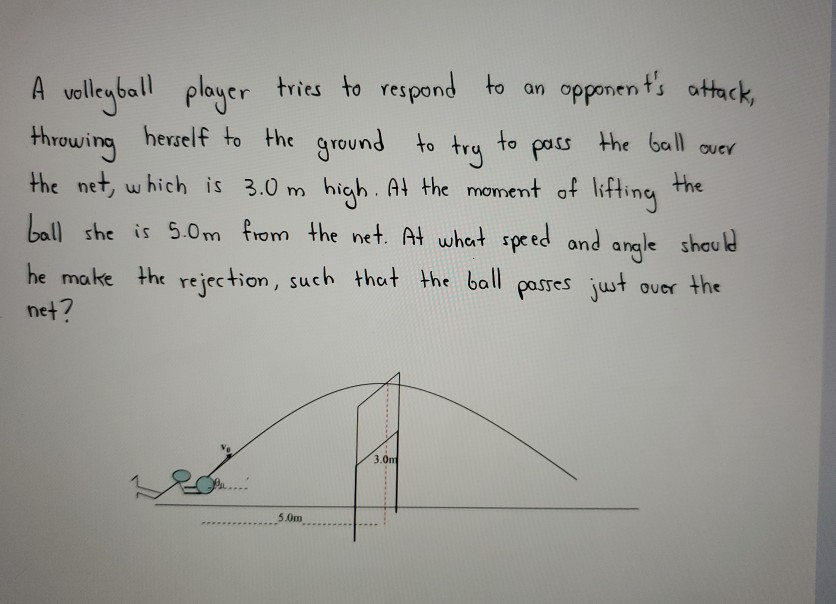 A volleyball player tries to respond to an opponent's attack,
throwing herself to the ground to try to pass the ball over
the net, which is 3.0 m high. At the moment of lifting the
ball she is 5.0m from the net. At what speed and angle should
he make the rejection, such that the ball passes just over the
net?
v₀
3.0m
θ₀
5.0m